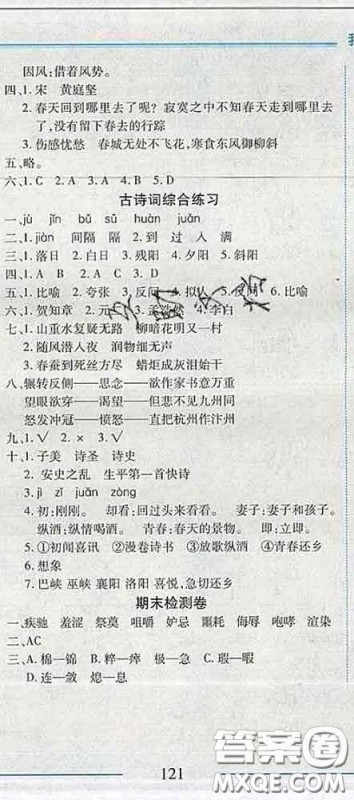 因风:借着风势。
四、1.宋 黄庭坚
2.春天回到哪里去了呢? 寂寞之中不知春天走到哪里去
了,没有留下春去的行踪
3.伤感忧愁 春城无处不飞花,寒食东风御柳斜
五、略。
六、1.C 2.A 3.A 4.B 5.D
古诗词综合练习
一、jù jǐn bǔ sū huàn juǎn
二、1.jiàn 间隔 隔 2.到 过 入 满
三、1.落日 2.白日 3.残阳 4.夕阳 5.斜阳
四、1.A 2.D 3.B 4.C 5.D
五、1.比喻 2.夸张 3.反问 4.拟人 5.反问 6.比喻
六、1.贺知章 2.元 3.孟浩然 4.李白
七、1.山重水复疑无路 柳暗花明又一村
2.随风潜入夜 润物细无声
3.春蚕到死丝方尽 蜡炬成灰泪始干
八、辗转反侧——思念——欲作家书意万重
望眼欲穿——渴望——但悲不见九州同
怒发冲冠——愤怒——直把杭州作汴州
九、1.√ 2.× 3.√
十、1.子美 诗圣 诗史
2.安史之乱 生平第一首快诗
3.jì zǐ juǎn zòng
4.初:刚刚。 却看:回过头来看看。 妻子:妻子和孩子。
纵酒:纵情喝酒。 青春:春天的景物。 即:立即。
5.①初闻喜讯 ②漫卷诗书 ③放歌纵酒 ④青春还乡
6.想象
7.巴峡 巫峡 襄阳 洛阳 喜悦,急切还乡
期末检测卷
一、疾驰 羞涩 祭奠 咀嚼 妒忌 噩耗 侮辱 咆哮 渲染
二、AC
三、A.棉—锦 B.粹—瘁 C.极—急
D.连—敛 熄—息
121
答案圈
MXQE.COM